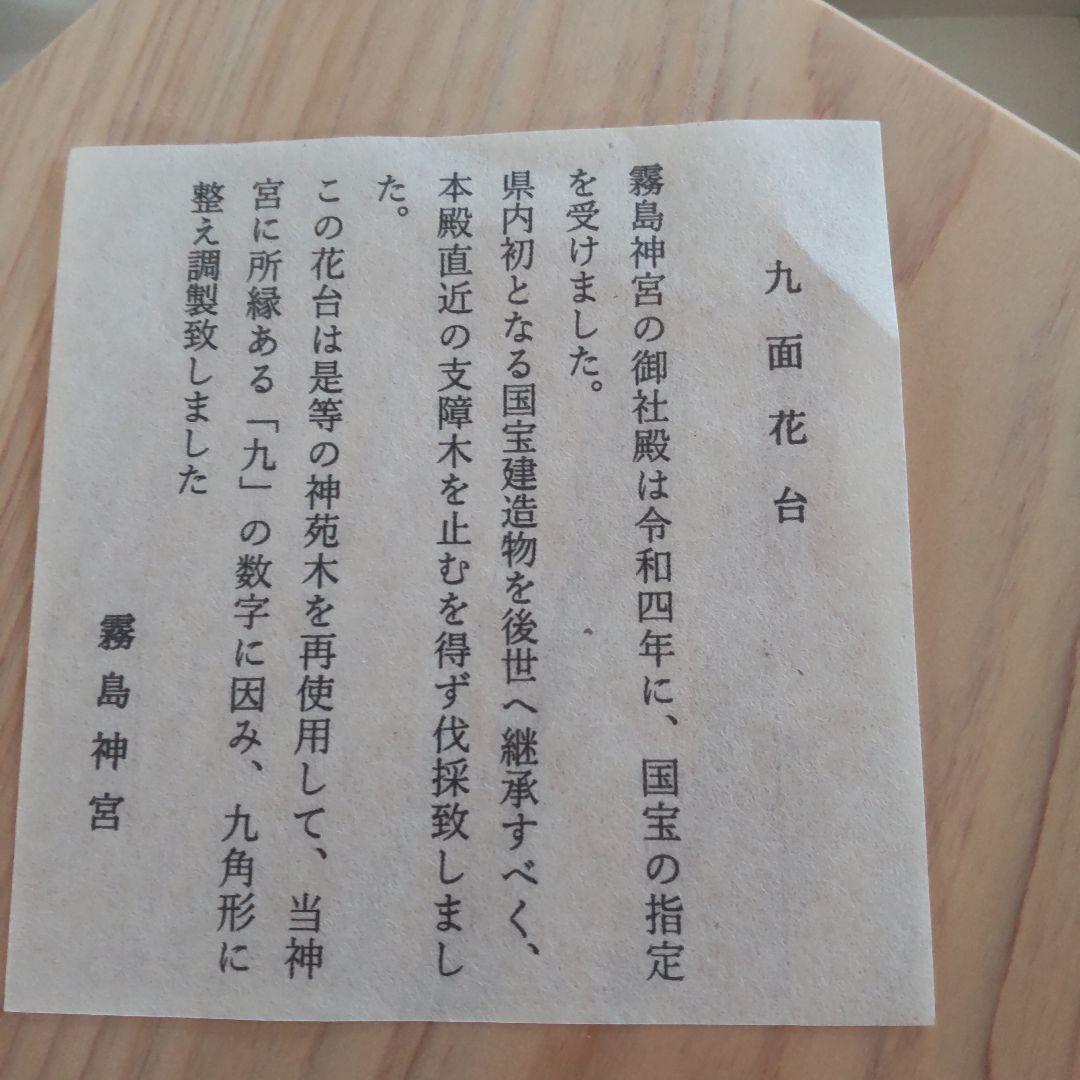 九面花台
霧島神宮の御社殿は令和四年に、国宝の指定
を受けました。
県内初となる国宝建造物を後世へ継承すべく、
本殿直近の支障木を止むを得ず伐採致しまし
た。
この花台は是等の神苑木を再使用して、当神
宮に所縁ある「九」の数字に因み、九角形に
整え調製致しました
霧島神宮